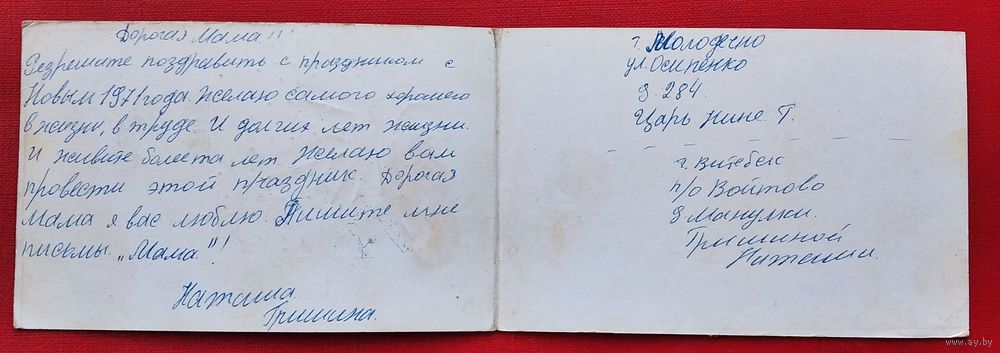 Дорогая Мама!!!
Резремите поздравить с праздником с
Новым 1971 года. Желаю самого хорошего
в жизни, в труде. И долгих лет жизни.
И живите более ста лет Желаю вам
провести этой праздник. Дорогая
Мама я вас люблю. Пишите мне
письмы „Мама"!
Наташа
Гришина.
г. Молодечно
ул. Осипенко
д 284
Царь Нине Г.
г. Витебск
п/о Войтово
д Манулки.
Гришиной
Наташи.
www.ay.by